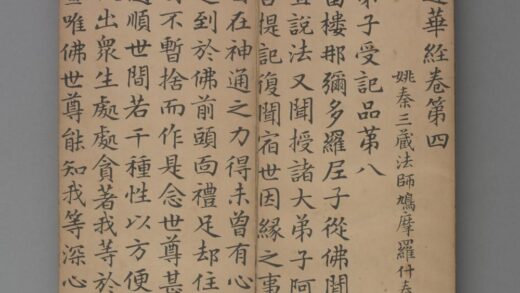 華經卷第四
姚秦三藏法師鳩摩羅什奉
弟子受記品苐八
富樓那彌多羅尼子從佛聞
宜說法又聞授諸大弟子阿
菩提記復聞宿世因緣之事
自在神通之力得未曾有心
起到於佛前頭面禮足却住
目不暫捨而作是念世尊甚
順世間若干種性以方便
出衆生處處貪著我等於
宣唯佛世尊能知我等深心